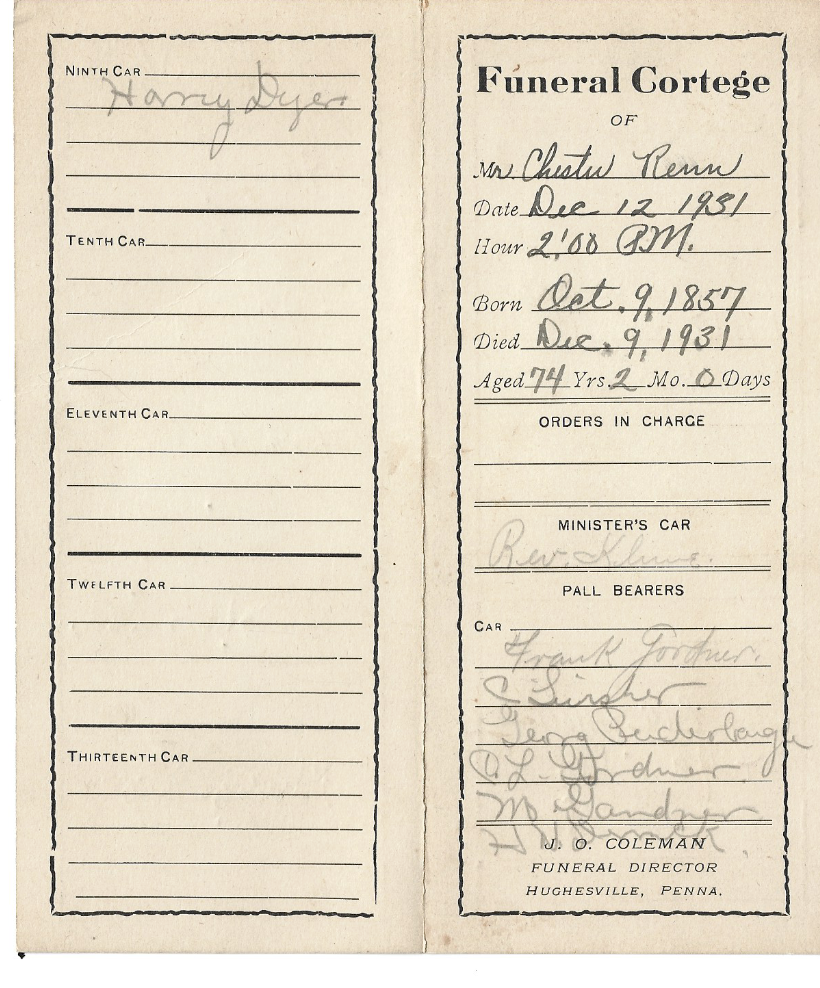 NINTH CAR
Harry Dyer
TENTH CAR
ELEVENTH CAR
TWELFTH CAR
THIRTEENTH CAR
Funeral Cortege
OF
Mr. Chester Renn
Date Dec 12 1931
Hour 2:00 P.M.
Born Oct. 9, 1857
Died Dec. 9, 1931
Aged 74 Yrs. 2 Mo. 0 Days
ORDERS IN CHARGE
MINISTER'S CAR
Rev. Kline
PALL BEARERS
CAR
Frank Gordner.
C
Georg
C. L. Gordner
M Gardner
J. O. COLEMAN
FUNERAL DIRECTOR
HUGHESVILLE, PENNA.